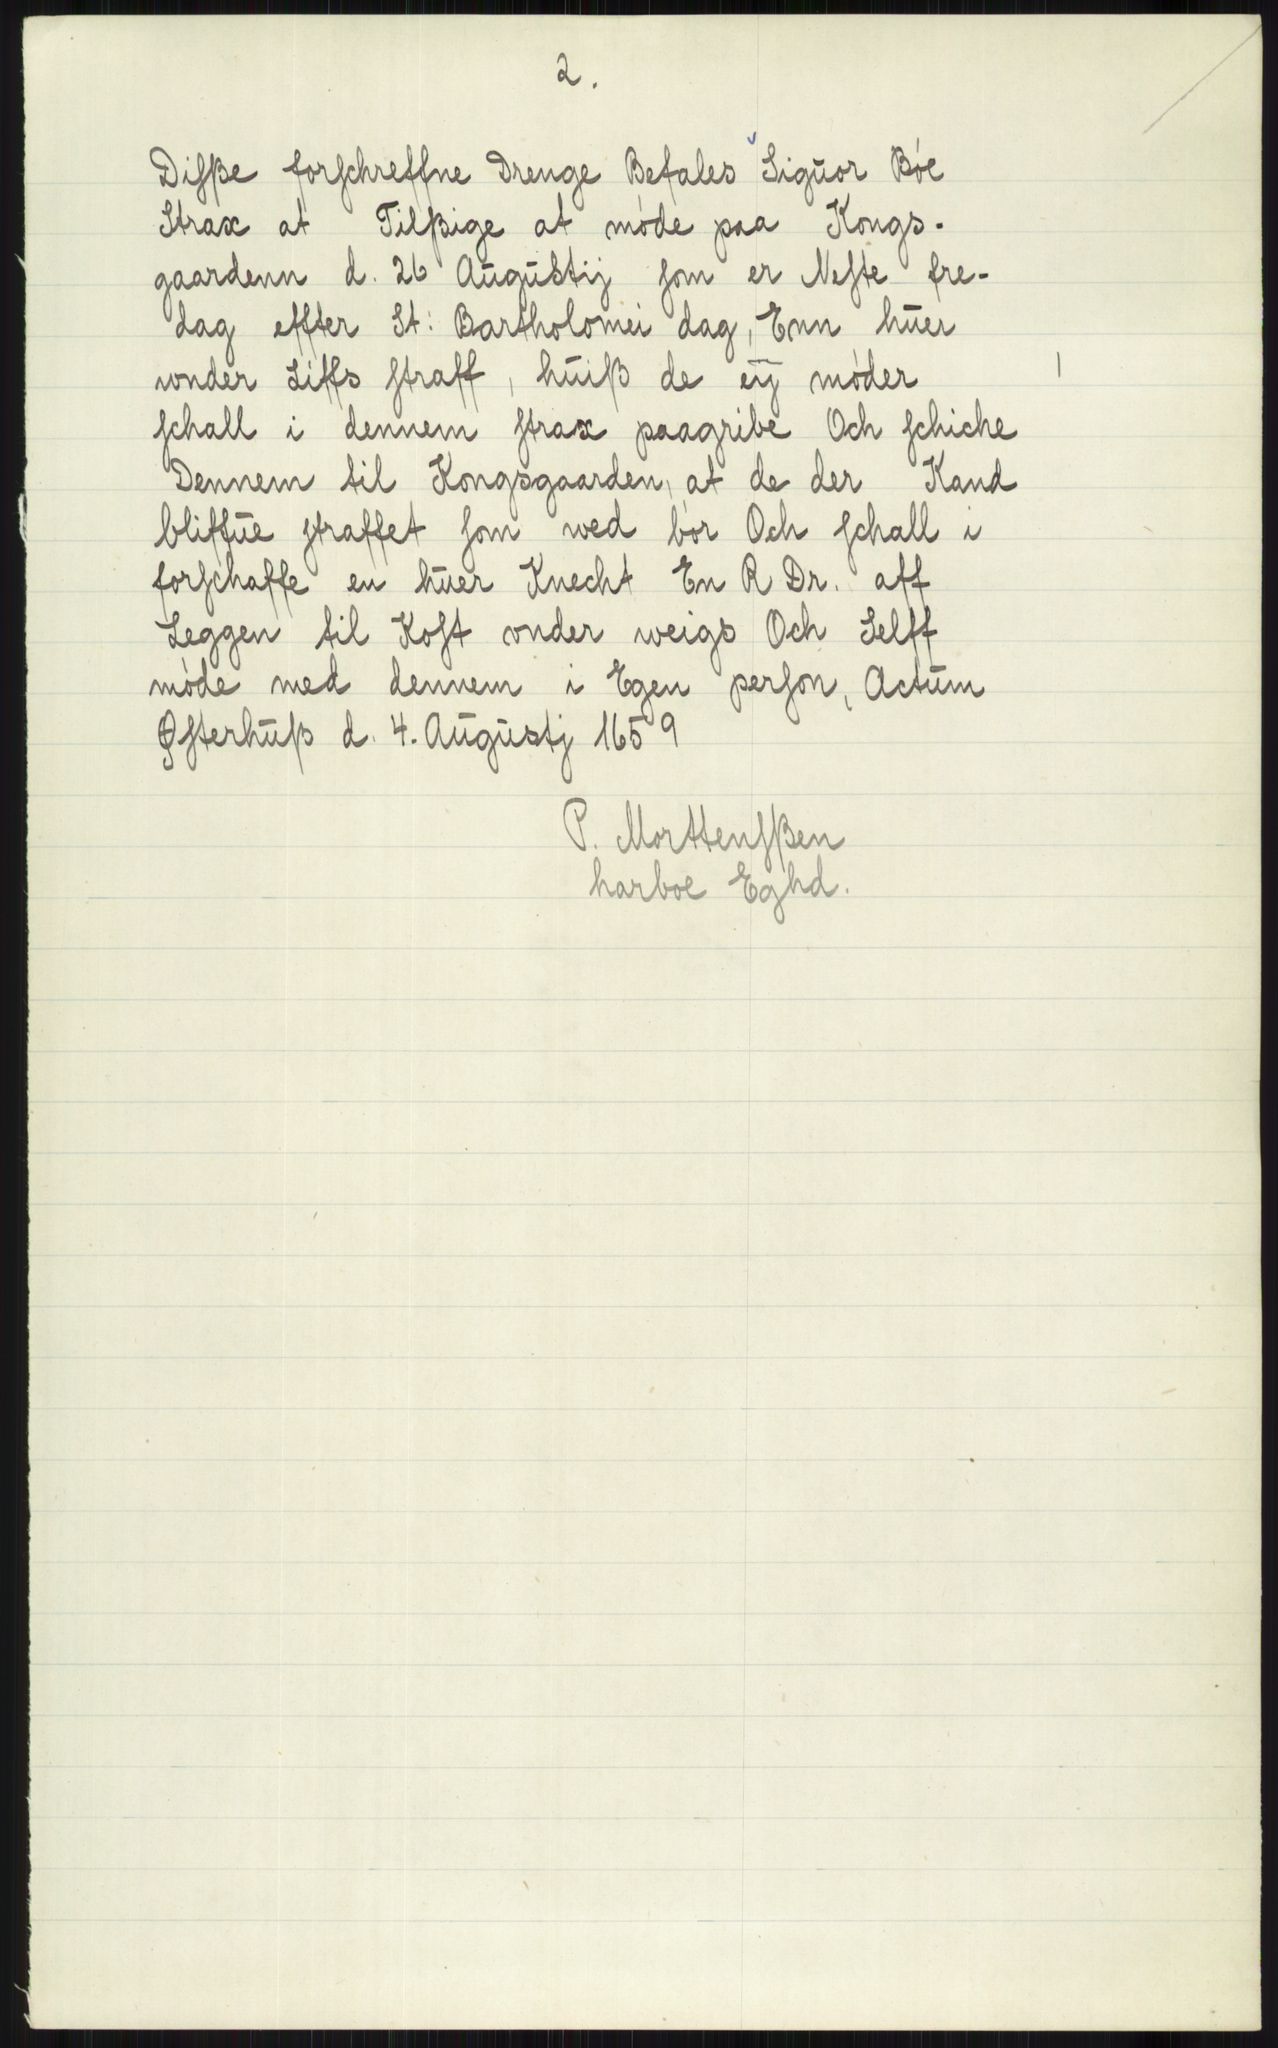 2.
Disße forschreffne Drenge Befales Siguor Bóe
Strax at Tilßige at móde paa Kongs-
gaardenn d. 26 Augustij som er Neste fre-
dag effter St: Bartholomei dag, Enn huer
vnder Liffs straff, huiß de eij móder
schall i dennem strax paagribe Och schiche
Dennem til Kongsgaarden, at de der Kand
bliffue straffet som wed bór Och schall i
forschaffe en huer Knecht En R Dr. aff
Leggen til Kost vnder weigs Och Selff
móde med dennem i Egen person, Actum
Østerhuß d. 4. Augustj 1659
P. Morttensßen
harboe Eghd.